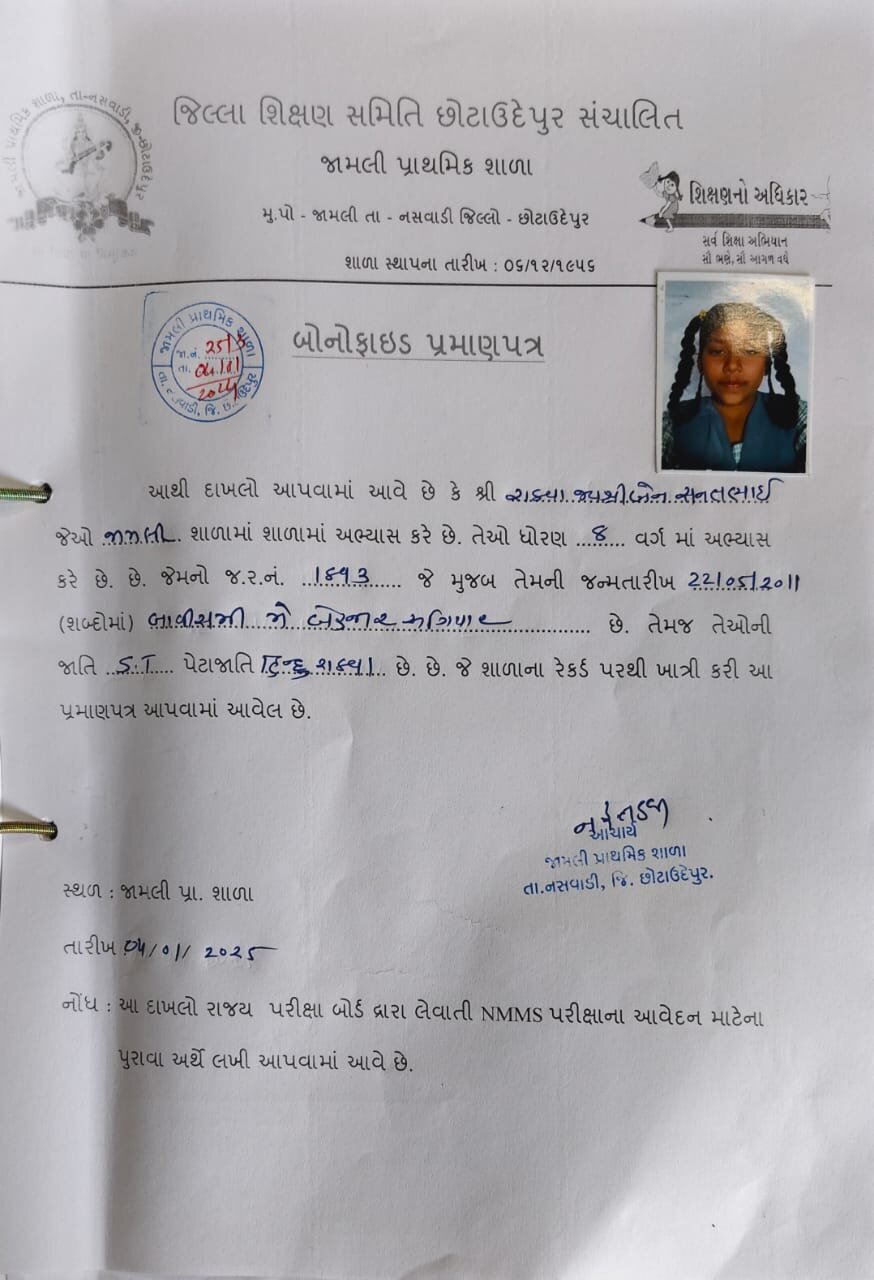 જામલી પ્રાથમિક શાળા, તા-નસવાડી, જી-છોટાઉદેપુર
જિલ્લા શિક્ષણ સમિતિ છોટાઉદેપુર સંચાલિત
જામલી પ્રાથમિક શાળા
મુ.પો - જામલી તા - નસવાડી જિલ્લો - છોટાઉદેપુર
શાળા સ્થાપના તારીખ : ૦૬/૧૨/૧૯૫૬
શિક્ષણનો અધિકાર
સર્વ શિક્ષા અભિયાન
સૌ ભણે, સૌ આગળ વધે
જામલી પ્રાથમિક શાળા
જા.નં.
તા.
જિ.
બોનોફાઇડ પ્રમાણપત્ર
આથી દાખલો આપવામાં આવે છે કે શ્રી રાઠવા જયશ્રીબેન સનતભાઈ
જેઓ જામલી શાળામાં શાળામાં અભ્યાસ કરે છે. તેઓ ધોરણ ૮ વર્ગ માં અભ્યાસ
કરે છે. છે. જેમનો જ.ર.નં. ૧૮૧૩ જે મુજબ તેમની જન્મતારીખ 22/05/2011
(શબ્દોમાં) બાવીસમી મે બેહજાર અગિયાર છે. તેમજ તેઓની
જાતિ S.T પેટાજાતિ હિન્દુ રાઠવા છે. છે. જે શાળાના રેકર્ડ પરથી ખાત્રી કરી આ
પ્રમાણપત્ર આપવામાં આવેલ છે.
આચાર્ય
જામલી પ્રાથમિક શાળા
તા.નસવાડી, જિ. છોટાઉદેપુર.
સ્થળ : જામલી પ્રા. શાળા
તારીખ ૦૪/૦૧/ ૨૦૨૫
નોંધ : આ દાખલો રાજય પરીક્ષા બોર્ડ દ્રારા લેવાતી NMMS પરીક્ષાના આવેદન માટેના
પુરાવા અર્થે લખી આપવામાં આવે છે.